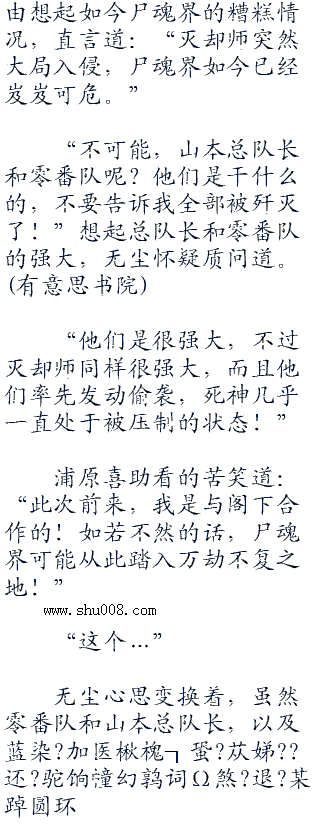 由想起如今尸魂界的糟糕情
况，直言道：“灭却师突然
大局入侵，尸魂界如今已经
岌岌可危。”
“不可能，山本总队长
和零番队呢？他们是干什么
的，不要告诉我全部被歼灭
了！”想起总队长和零番队
的强大，无尘怀疑质问道。
(有意思书院)
“他们是很强大，不过
灭却师同样很强大，而且他
们率先发动偷袭，死神几乎
一直处于被压制的状态！”
浦原喜助看的苦笑道：
“此次前来，我是与阁下合
作的！如若不然的话，尸魂
界可能从此踏入万劫不复之
地！”
www.shu008.com
“这个…”
无尘心思变换着，虽然
零番队和山本总队长，以及
蓝染?加医楸槐┓蛩?苡娣??
还?驼饷潼幻鹑词Ω煞?退?某
踔圆环